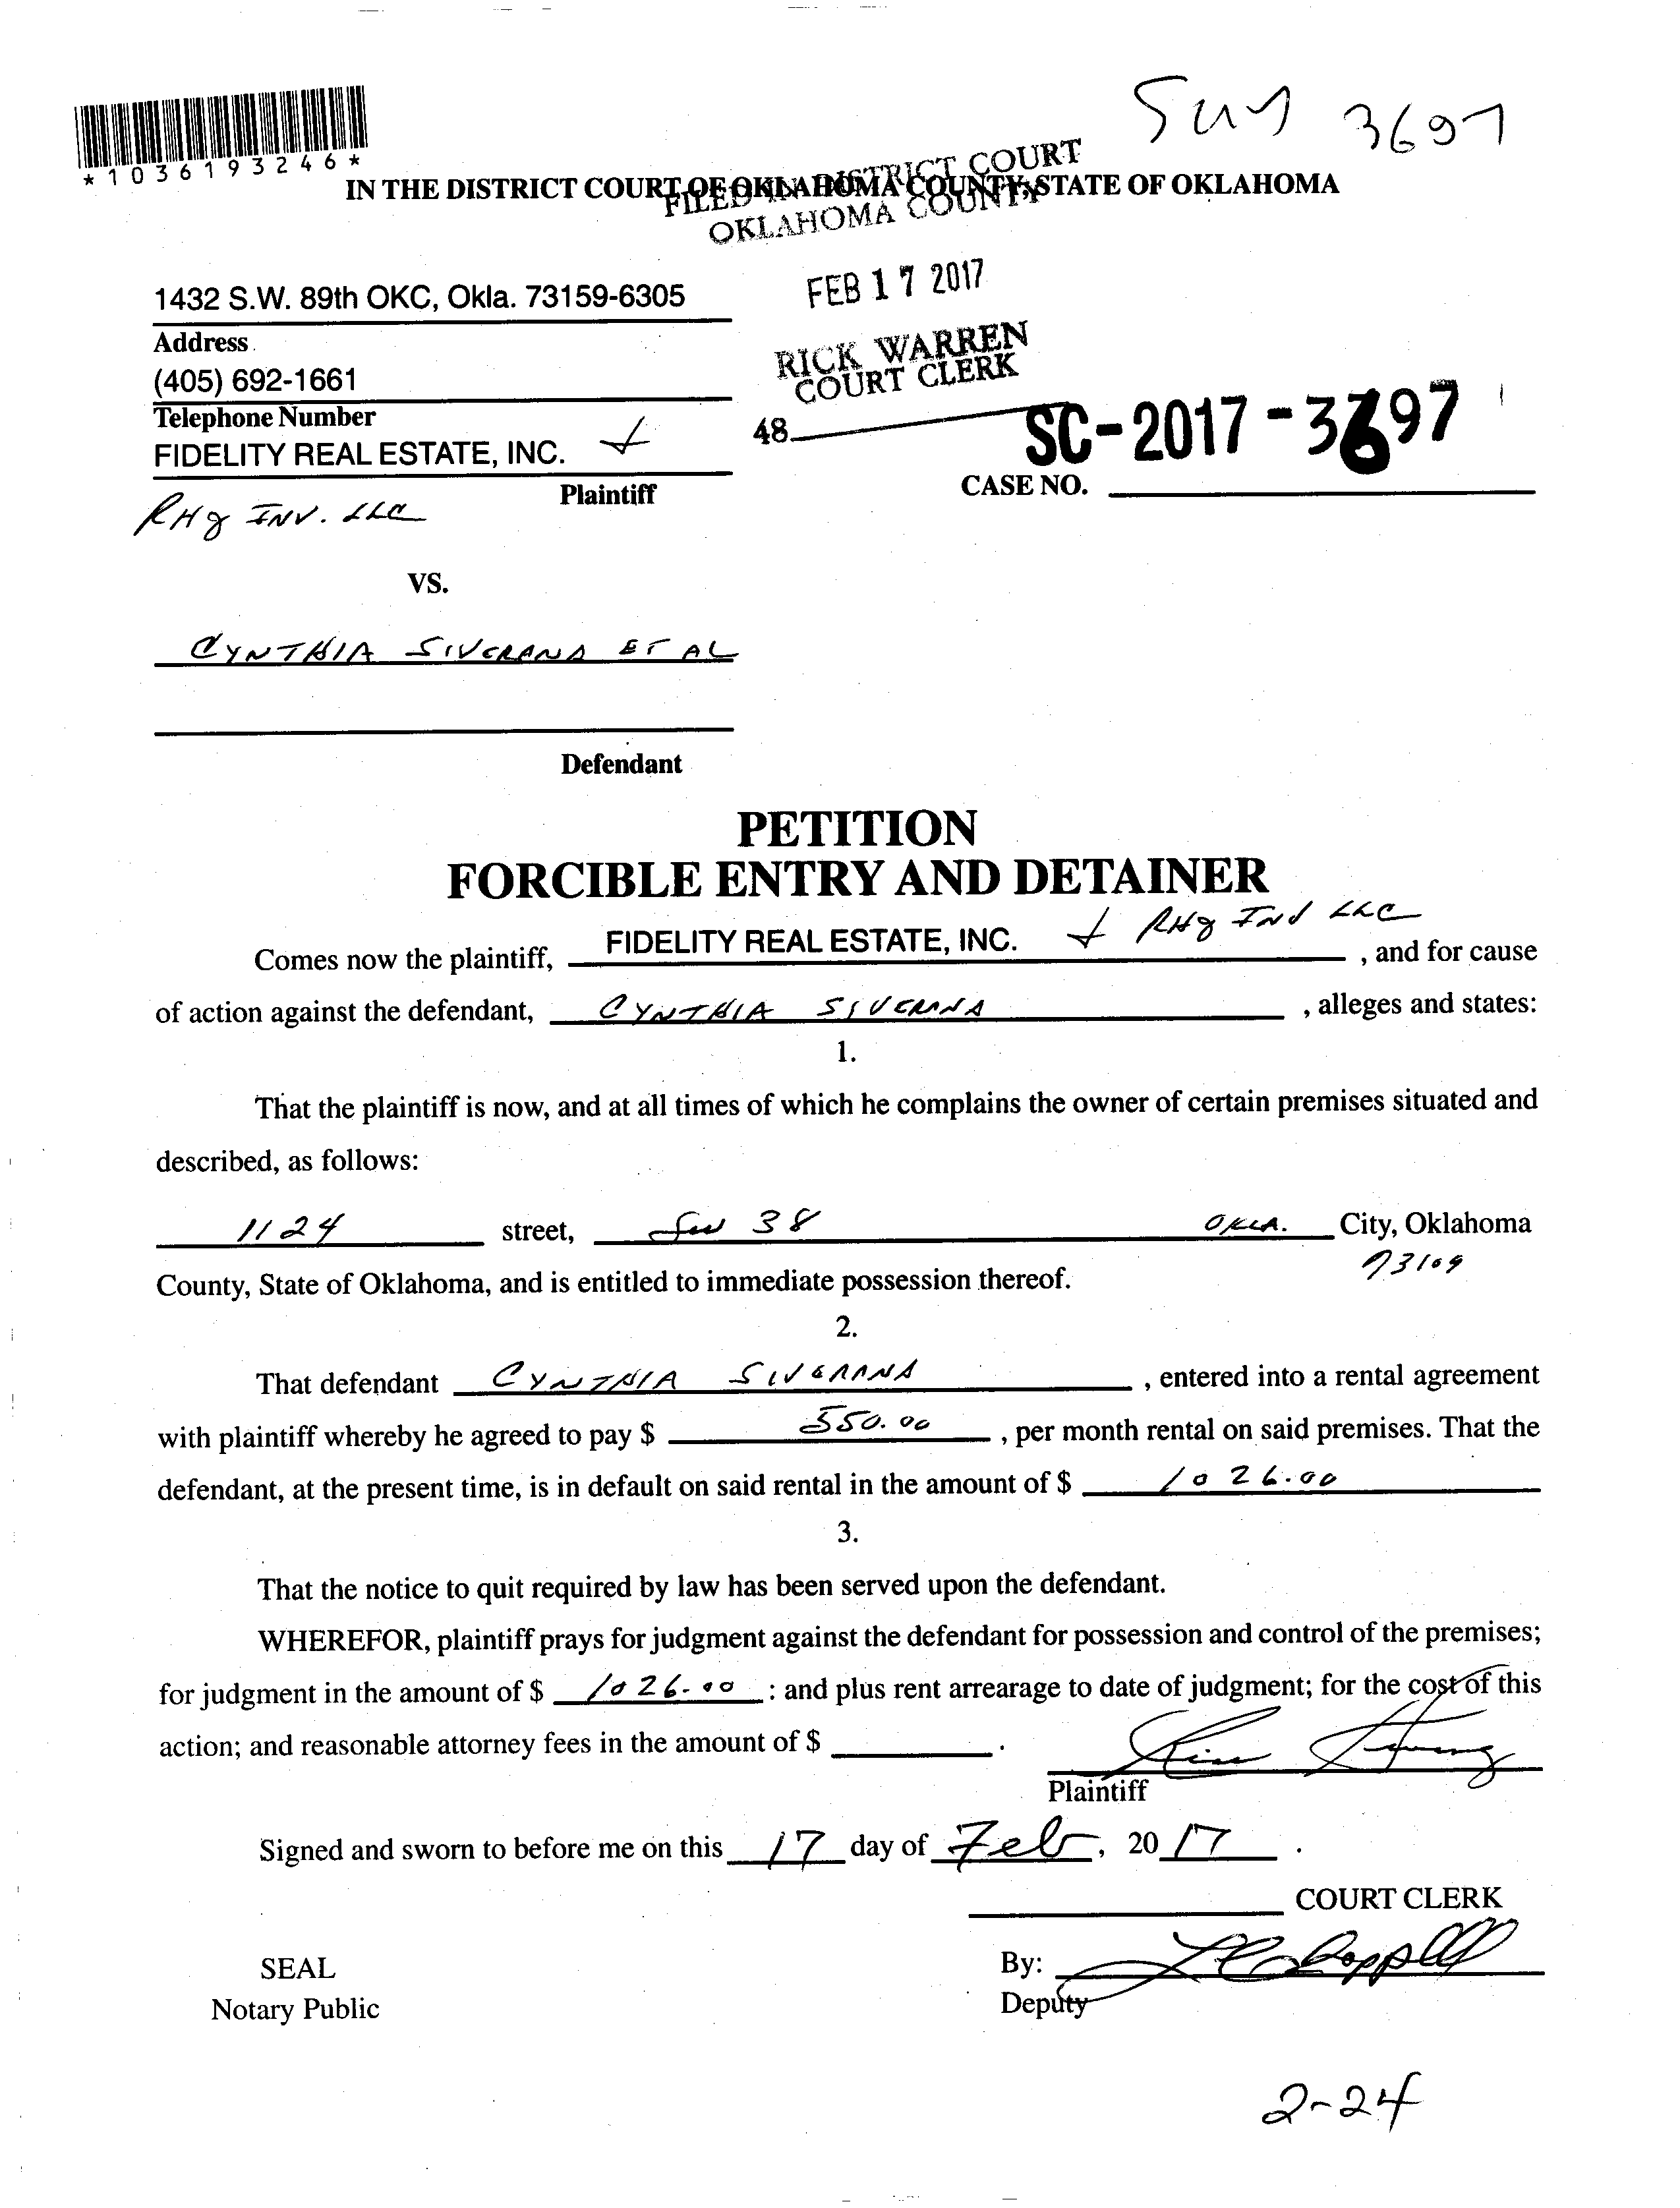 3697
*1036193246*
IN THE DISTRICT COURT OF OKLAHOMA COUNTY, STATE OF OKLAHOMA
FILED IN DISTRICT COURT
OKLAHOMA COUNTY
FEB 17 2017
RICK WARREN
COURT CLERK
48
1432 S.W. 89th OKC, Okla. 73159-6305
Address
(405) 692-1661
Telephone Number
FIDELITY REAL ESTATE, INC. +
Plaintiff
INV. LLC
SC-2017-3697
CASE NO.
VS.
CYNTHIA SIVERANA ET AL
Defendant
PETITION
FORCIBLE ENTRY AND DETAINER
Comes now the plaintiff, FIDELITY REAL ESTATE, INC. + INV LLC, and for cause
of action against the defendant, CYNTHIA SIVERANA, alleges and states:
1.
That the plaintiff is now, and at all times of which he complains the owner of certain premises situated and
described, as follows:
1124 street, SW 38 OKLA. City, Oklahoma
73109
County, State of Oklahoma, and is entitled to immediate possession thereof.
2.
That defendant CYNTHIA SIVERANA, entered into a rental agreement
with plaintiff whereby he agreed to pay $ 550.00, per month rental on said premises. That the
defendant, at the present time, is in default on said rental in the amount of $ 1026.00
3.
That the notice to quit required by law has been served upon the defendant.
WHEREFOR, plaintiff prays for judgment against the defendant for possession and control of the premises;
for judgment in the amount of $ 1026.00 : and plus rent arrearage to date of judgment; for the cost of this
action; and reasonable attorney fees in the amount of $ .
Plaintiff
Signed and sworn to before me on this 17 day of Feb, 20 17.
COURT CLERK
SEAL
Notary Public
By:
Deputy
2-24